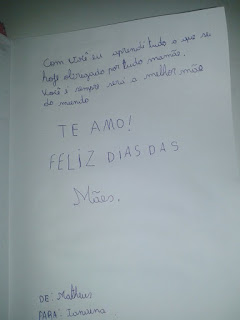 Com você eu aprendi tudo o que sei
hoje obrigado por tudo mamãe.
Você é sempre será a melhor mãe
do mundo
TE AMO!
FELIZ DIAS DAS
Mães.
DE: Matheus
PARA: Janaina